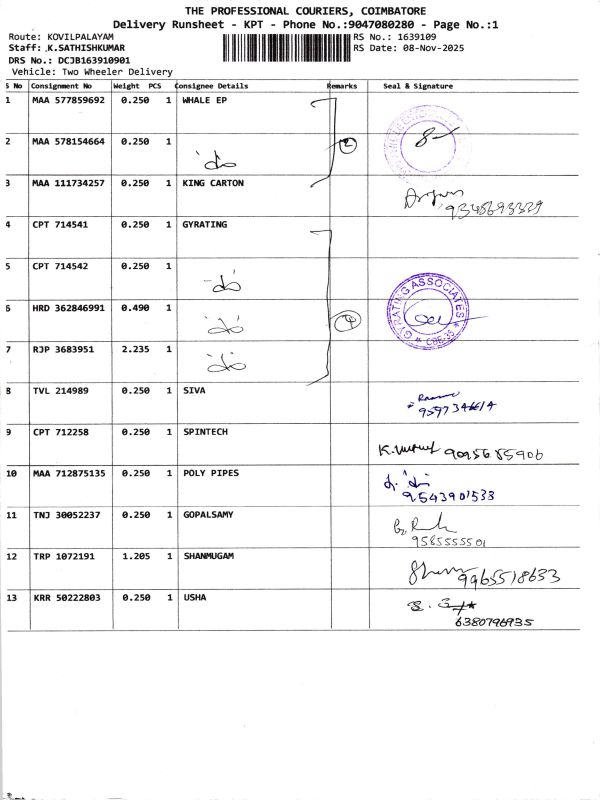 THE PROFESSIONAL COURIERS, COIMBATORE
Delivery Runsheet - KPT - Phone No.:9047080280 - Page No.:1
Route: KOVILPALAYAM RS No.: 1639109
Staff: K.SATHISHKUMAR RS Date: 08-Nov-2025
DRS No.: DCJB163910901
Vehicle: Two Wheeler Delivery
S No Consignment No Weight PCS Consignee Details Remarks Seal & Signature
1 MAA 577859692 0.250 1 WHALE EP
2 MAA 578154664 0.250 1 2
3 MAA 111734257 0.250 1 KING CARTON
9345693329
4 CPT 714541 0.250 1 GYRATING
5 CPT 714542 0.250 1
6 HRD 362846991 0.490 1 4 GYRATING ASSOCIATES * CBE-35 *
7 RJP 3683951 2.235 1
8 TVL 214989 0.250 1 SIVA
9 CPT 712258 0.250 1 SPINTECH
9095685906
10 MAA 712875135 0.250 1 POLY PIPES
9543901533
11 TNJ 30052237 0.250 1 GOPALSAMY
9585555501
12 TRP 1072191 1.205 1 SHANMUGAM
9965518633
13 KRR 50222803 0.250 1 USHA
6380796935